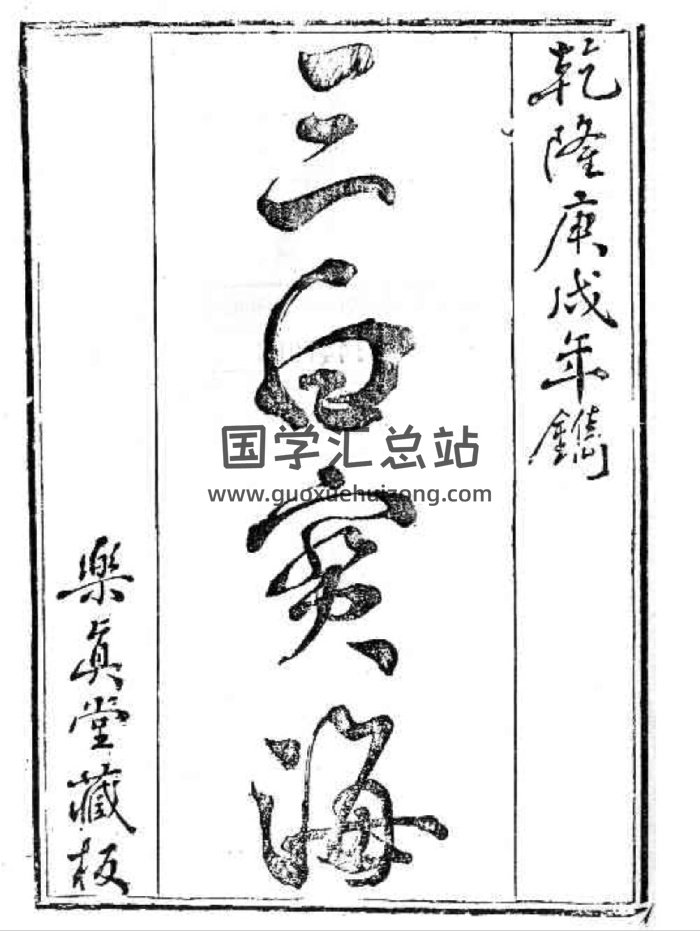 乾隆庚戌年鐫
三白寶海
樂眞堂藏板
国学汇总站
www.guoxuehuizong.com